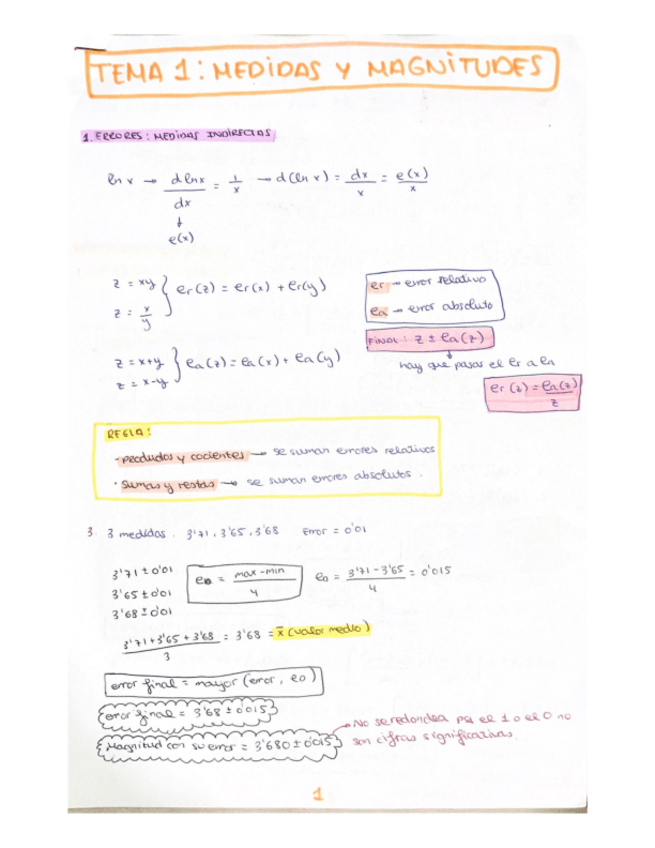 TEMA 1: MEDIDAS Y MAGNITUDES
1. ERRORES: MEDIDAS INDIRECTAS
ln x → d lnx / dx = 1/x → d(ln x) = dx/x = e(x)/x
↓
e(x)
z = xy
z = x/y } er(z) = er(x) + er(y)
er → error relativo
ea → error absoluto
FINAL: z ± ea(z)
z = x+y
z = x-y } ea(z) = ea(x) + ea(y)
hay que pasar el er a ea
er(z) = ea(z)/z
REGLA:
· productos y cocientes → se suman errores relativos
· sumas y restas → se suman errores absolutos.
3. 3 medidas. 3'71, 3'65, 3'68 Error = 0'01
3'71 ± 0'01
3'65 ± 0'01
3'68 ± 0'01
ea = max-min / 4
ea = 3'71 - 3'65 / 4 = 0'015
3'71+3'65+3'68 / 3 = 3'68 = x̄ (valor medio)
error final = mayor (error, ea)
error final = 3'68 ± 0'015
Magnitud con su error = 3'680 ± 0'015
No se redondea pq el 1 o el 0 no
son cifras significativas.
1